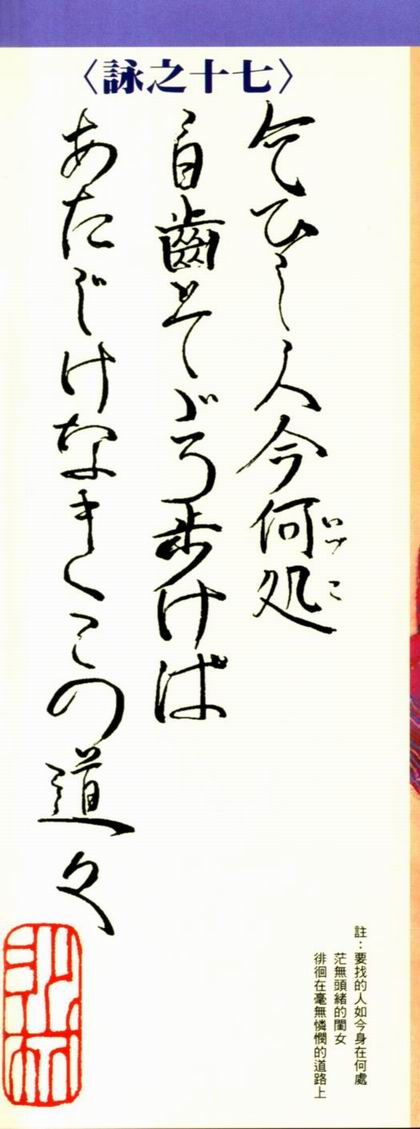 〈詠之十七〉
乞ひし人今何処
いづこ
白齒そゞろ歩けば
あたじけなきこの道々
註：要找的人如今身在何處
茫無頭緒的閨女
徘徊在毫無憐憫的道路上